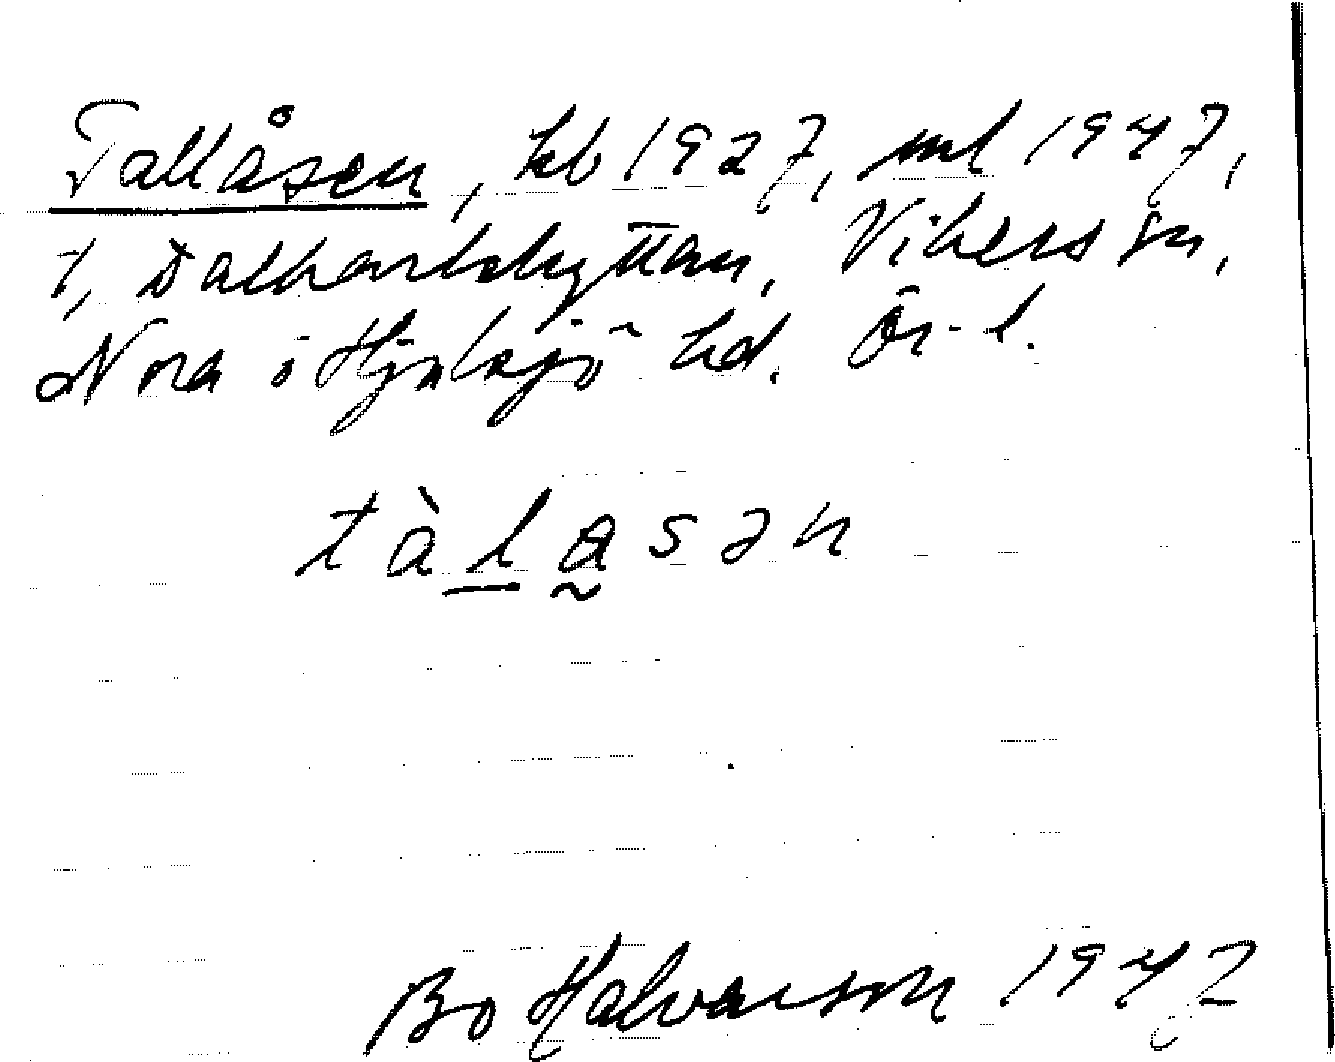 Tallåsen, kb 1927, ml 1947,
t, Dalkarlshyttan, Vikers sn,
Nora o Hjulsjö hd. Ör. l.
tàlåsən
Bo Halvarson 1947